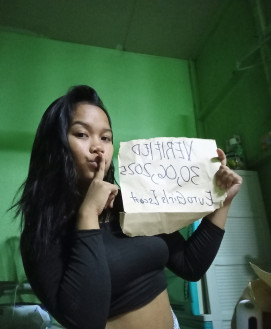 VERIFIED
30.06.2025
EuroGirlsEscort